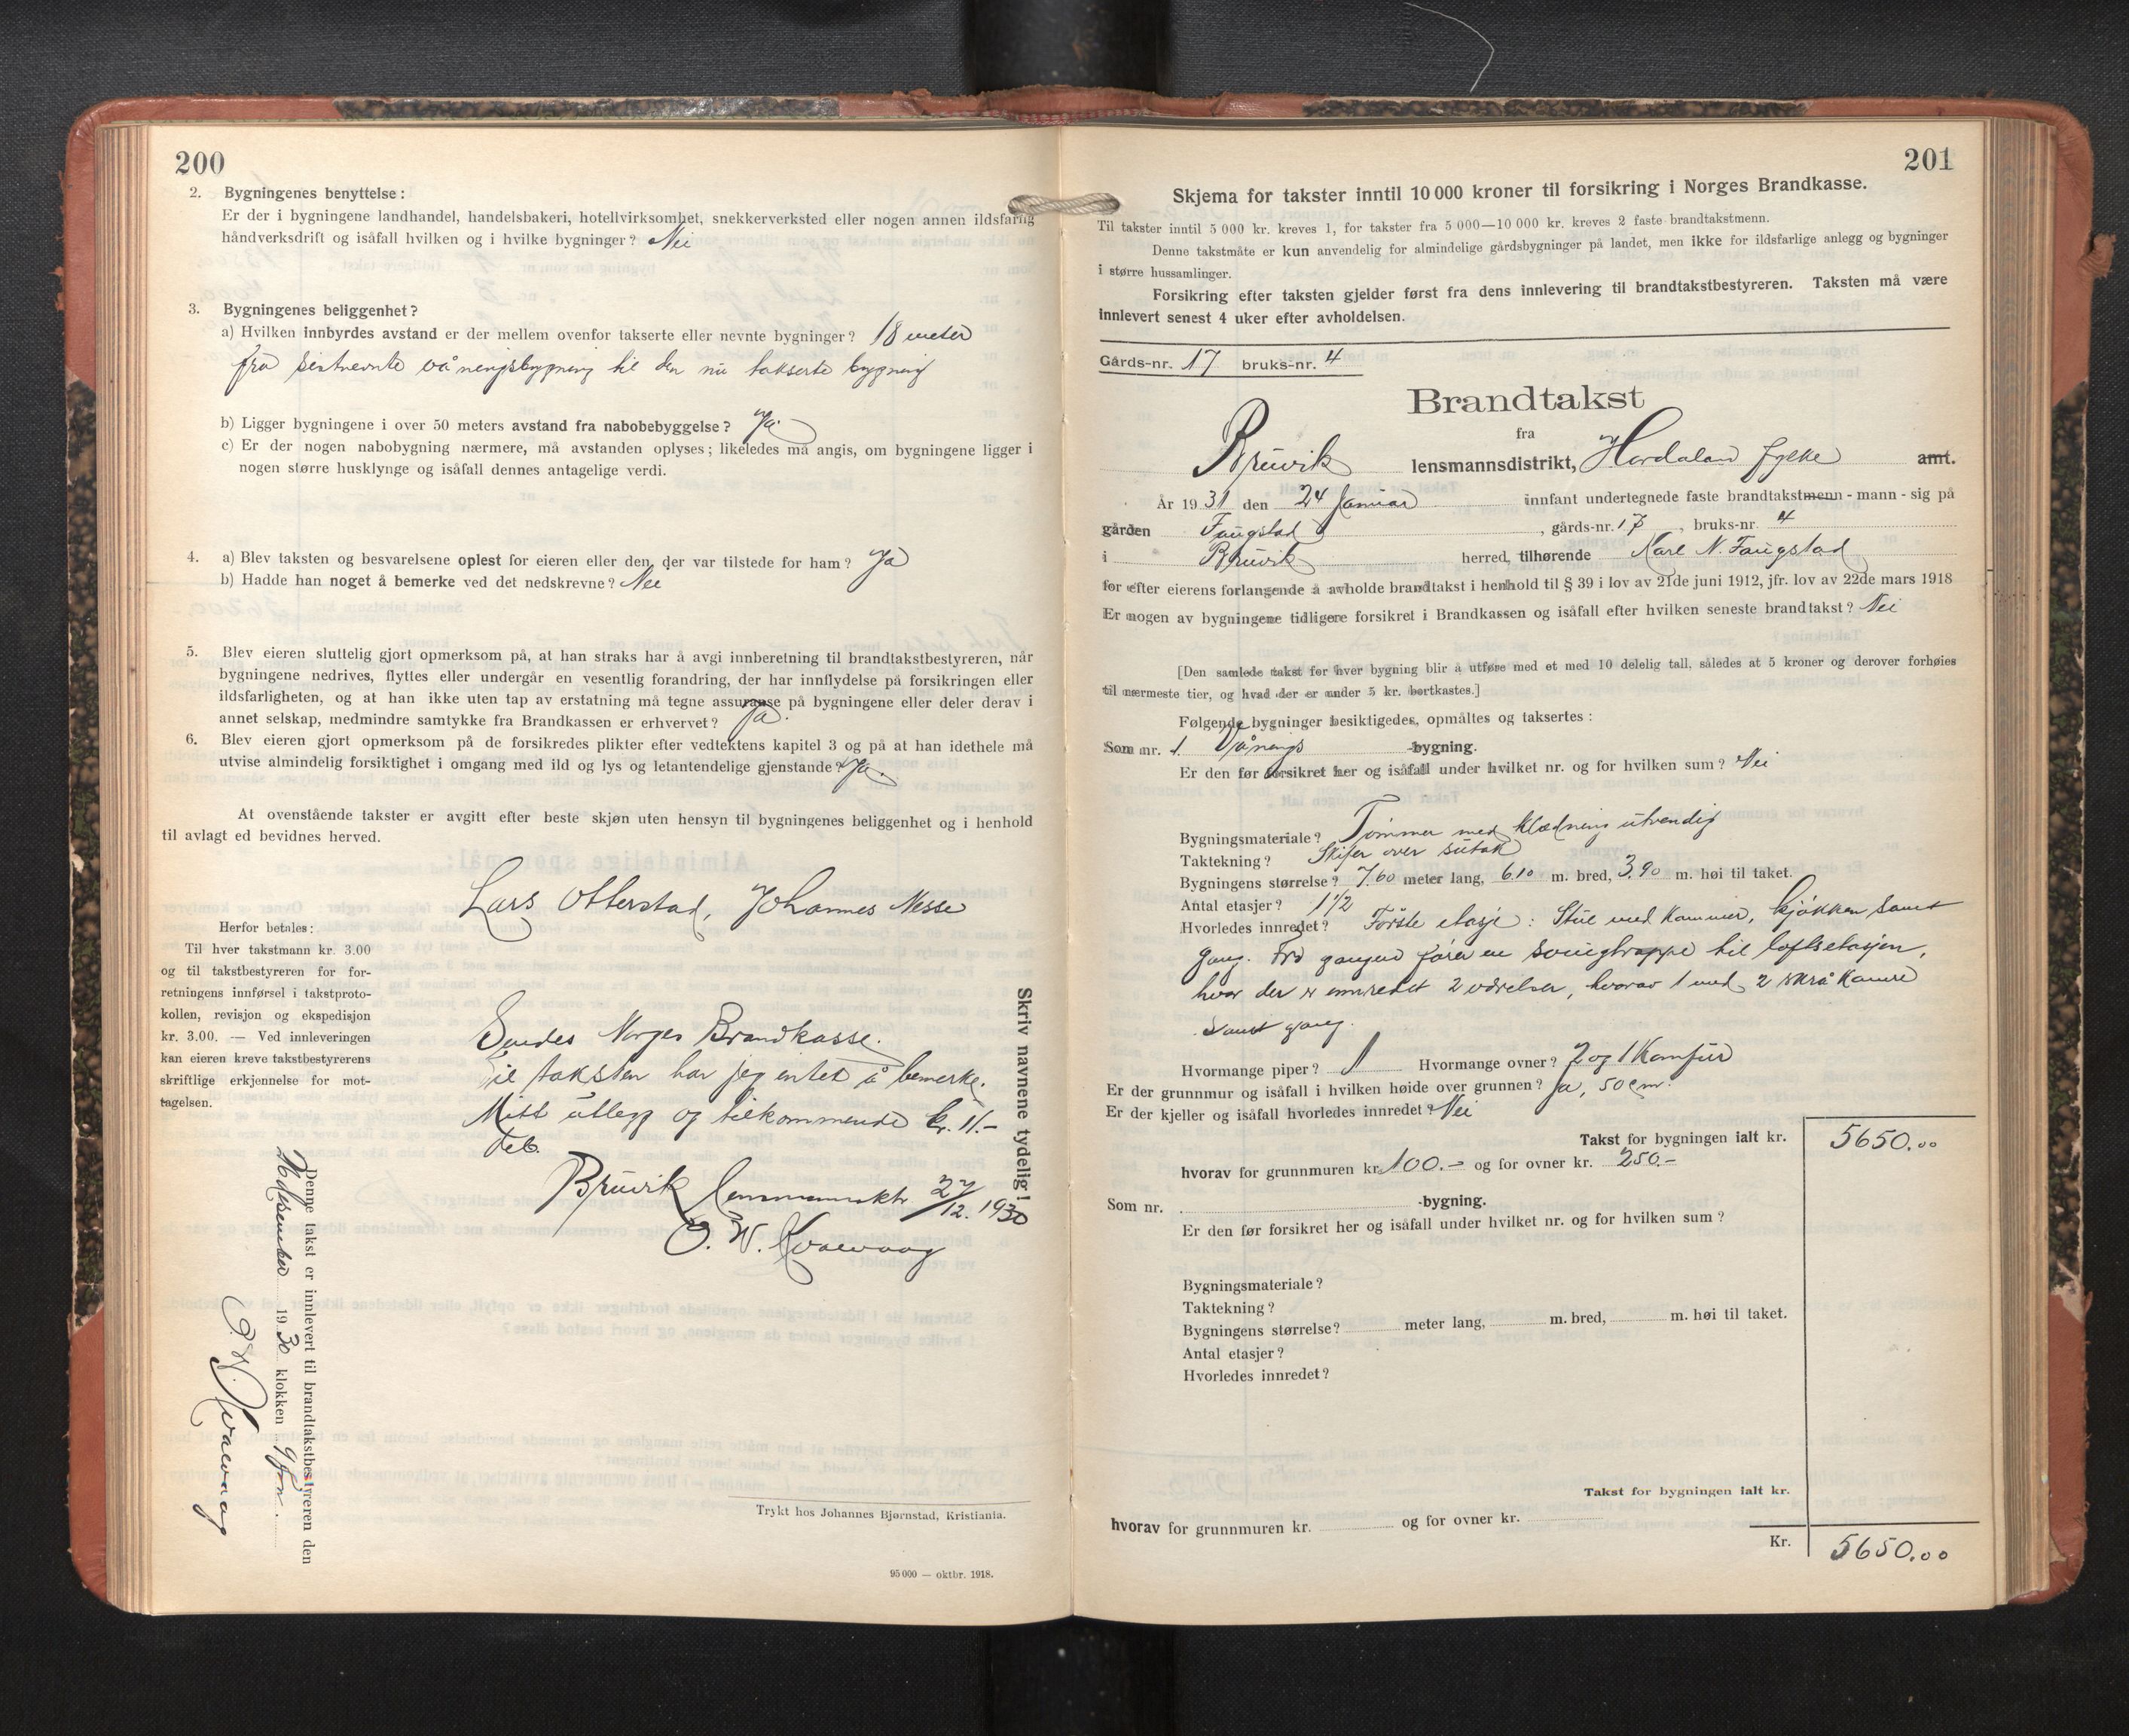 200
2. Bygningenes benyttelse:
Er der i bygningene landhandel, handelsbakeri, hotellvirksomhet, snekkerverksted eller nogen annen ildsfarlig
håndverksdrift og isåfall hvilken og i hvilke bygninger? Nei
3. Bygningenes beliggenhet?
a) Hvilken innbyrdes avstand er der mellem ovenfor takserte eller nevnte bygninger? 18 meter
fra sistnevnte våningsbygning til den nu takserte bygning
b) Ligger bygningene i over 50 meters avstand fra nabobebyggelse? Ja.
c) Er der nogen nabobygning nærmere, må avstanden oplyses; likeledes må angis, om bygningene ligger i
nogen større husklynge og isåfall dennes antagelige verdi.
4. a) Blev taksten og besvarelsene oplest for eieren eller den, der var tilstede for ham? Ja
b) Hadde han noget å bemerke ved det nedskrevne? Nei
5. Blev eieren sluttelig gjort opmerksom på, at han straks har å avgi innberetning til brandtakstbestyreren, når
bygningene nedrives, flyttes eller undergår en vesentlig forandring, der har innflydelse på forsikringen eller
ildsfarligheten, og at han ikke uten tap av erstatning må tegne assuranse på bygningene eller deler derav i
annet selskap, medmindre samtykke fra Brandkassen er erhvervet? Ja.
6. Blev eieren gjort opmerksom på de forsikredes plikter efter vedtektens kapitel 3 og på at han idethele må
utvise almindelig forsiktighet i omgang med ild og lys og letantendelige gjenstande? Ja.
At ovenstående takster er avgitt efter beste skjøn uten hensyn til bygningenes beliggenhet og i henhold
til avlagt ed bevidnes herved.
Lars Otterstad, Johannes Nesse
Herfor betales:
Til hver takstmann kr. 3.00
og til takstbestyreren for for-
retningens innførsel i takstproto-
kollen, revisjon og ekspedisjon
kr. 3.00. — Ved innleveringen
kan eieren kreve takstbestyrerens
skriftlige erkjennelse for mot-
tagelsen.
Sendes Norges Brandkasse.
Til taksten har jeg intet å bemerke.
Mitt utlegg og tilkommende kr. 11.-
Bruvik lensmannsktr. 27/12. 1930
O. W. Kvaevaag
Skriv navnene tydelig!
Denne takst er innlevert til brandtakstbestyreren den
19 30 klokken 9 fm.
O. W. Kvaevaag
Trykt hos Johannes Bjørnstad, Kristiania.
95 000 — oktbr. 1918.
201
Skjema for takster inntil 10 000 kroner til forsikring i Norges Brandkasse.
Til takster inntil 5 000 kr. kreves 1, for takster fra 5 000—10 000 kr. kreves 2 faste brandtakstmenn.
Denne takstmåte er kun anvendelig for almindelige gårdsbygninger på landet, men ikke for ildsfarlige anlegg og bygninger
i større hussamlinger.
Forsikring efter taksten gjelder først fra dens innlevering til brandtakstbestyreren. Taksten må være
innlevert senest 4 uker efter avholdelsen.
Gårds-nr. 17 bruks-nr. 4
Brandtakst
fra
Bruvik lensmannsdistrikt, Hordaland fylke amt.
År 1931 den 24 Januar innfant undertegnede faste brandtakstmenn - mann - sig på
gården Faugstad, gårds-nr. 17, bruks-nr. 4
i Bruvik herred, tilhørende Karl N. Faugstad
for efter eierens forlangende å avholde brandtakst i henhold til § 39 i lov av 21de juni 1912, jfr. lov av 22de mars 1918
Er nogen av bygningene tidligere forsikret i Brandkassen og isåfall efter hvilken seneste brandtakst? Nei
[Den samlede takst for hver bygning blir å utføre med et med 10 delelig tall, således at 5 kroner og derover forhøies
til nærmeste tier, og hvad der er under 5 kr. bortkastes.]
Følgende bygninger besiktigedes, opmåltes og taksertes:
Som nr. 1. Vånings -bygning.
Er den før forsikret her og isåfall under hvilket nr. og for hvilken sum? Nei
Bygningsmateriale? Tømmer med klædning utvendig
Taktekning? Skifer over sutak
Bygningens størrelse? 7.60 meter lang, 6.10 m. bred, 3.90 m. høi til taket.
Antal etasjer? 1 1/2
Hvorledes innredet? Første etasje: Stue med kammer, kjøkken samt
gang. Fra gangen fører en svingtrappe til loftsetasjen,
hvor der er innredet 2 værelser, hvorav 1 med 2 skråkamre
samt gang.
Hvormange piper? 1 Hvormange ovner? 2 og 1 Komfur
Er der grunnmur og isåfall i hvilken høide over grunnen? Ja, 50 cm.
Er der kjeller og isåfall hvorledes innredet? Nei
Takst for bygningen ialt kr. 5650.00
hvorav for grunnmuren kr. 100.- og for ovner kr. 250.-
Som nr. -bygning.
Er den før forsikret her og isåfall under hvilket nr. og for hvilken sum?
Bygningsmateriale?
Taktekning?
Bygningens størrelse? meter lang, m. bred, m. høi til taket.
Antal etasjer?
Hvorledes innredet?
Takst for bygningen ialt kr.
hvorav for grunnmuren kr. og for ovner kr.
Kr. 5650.00